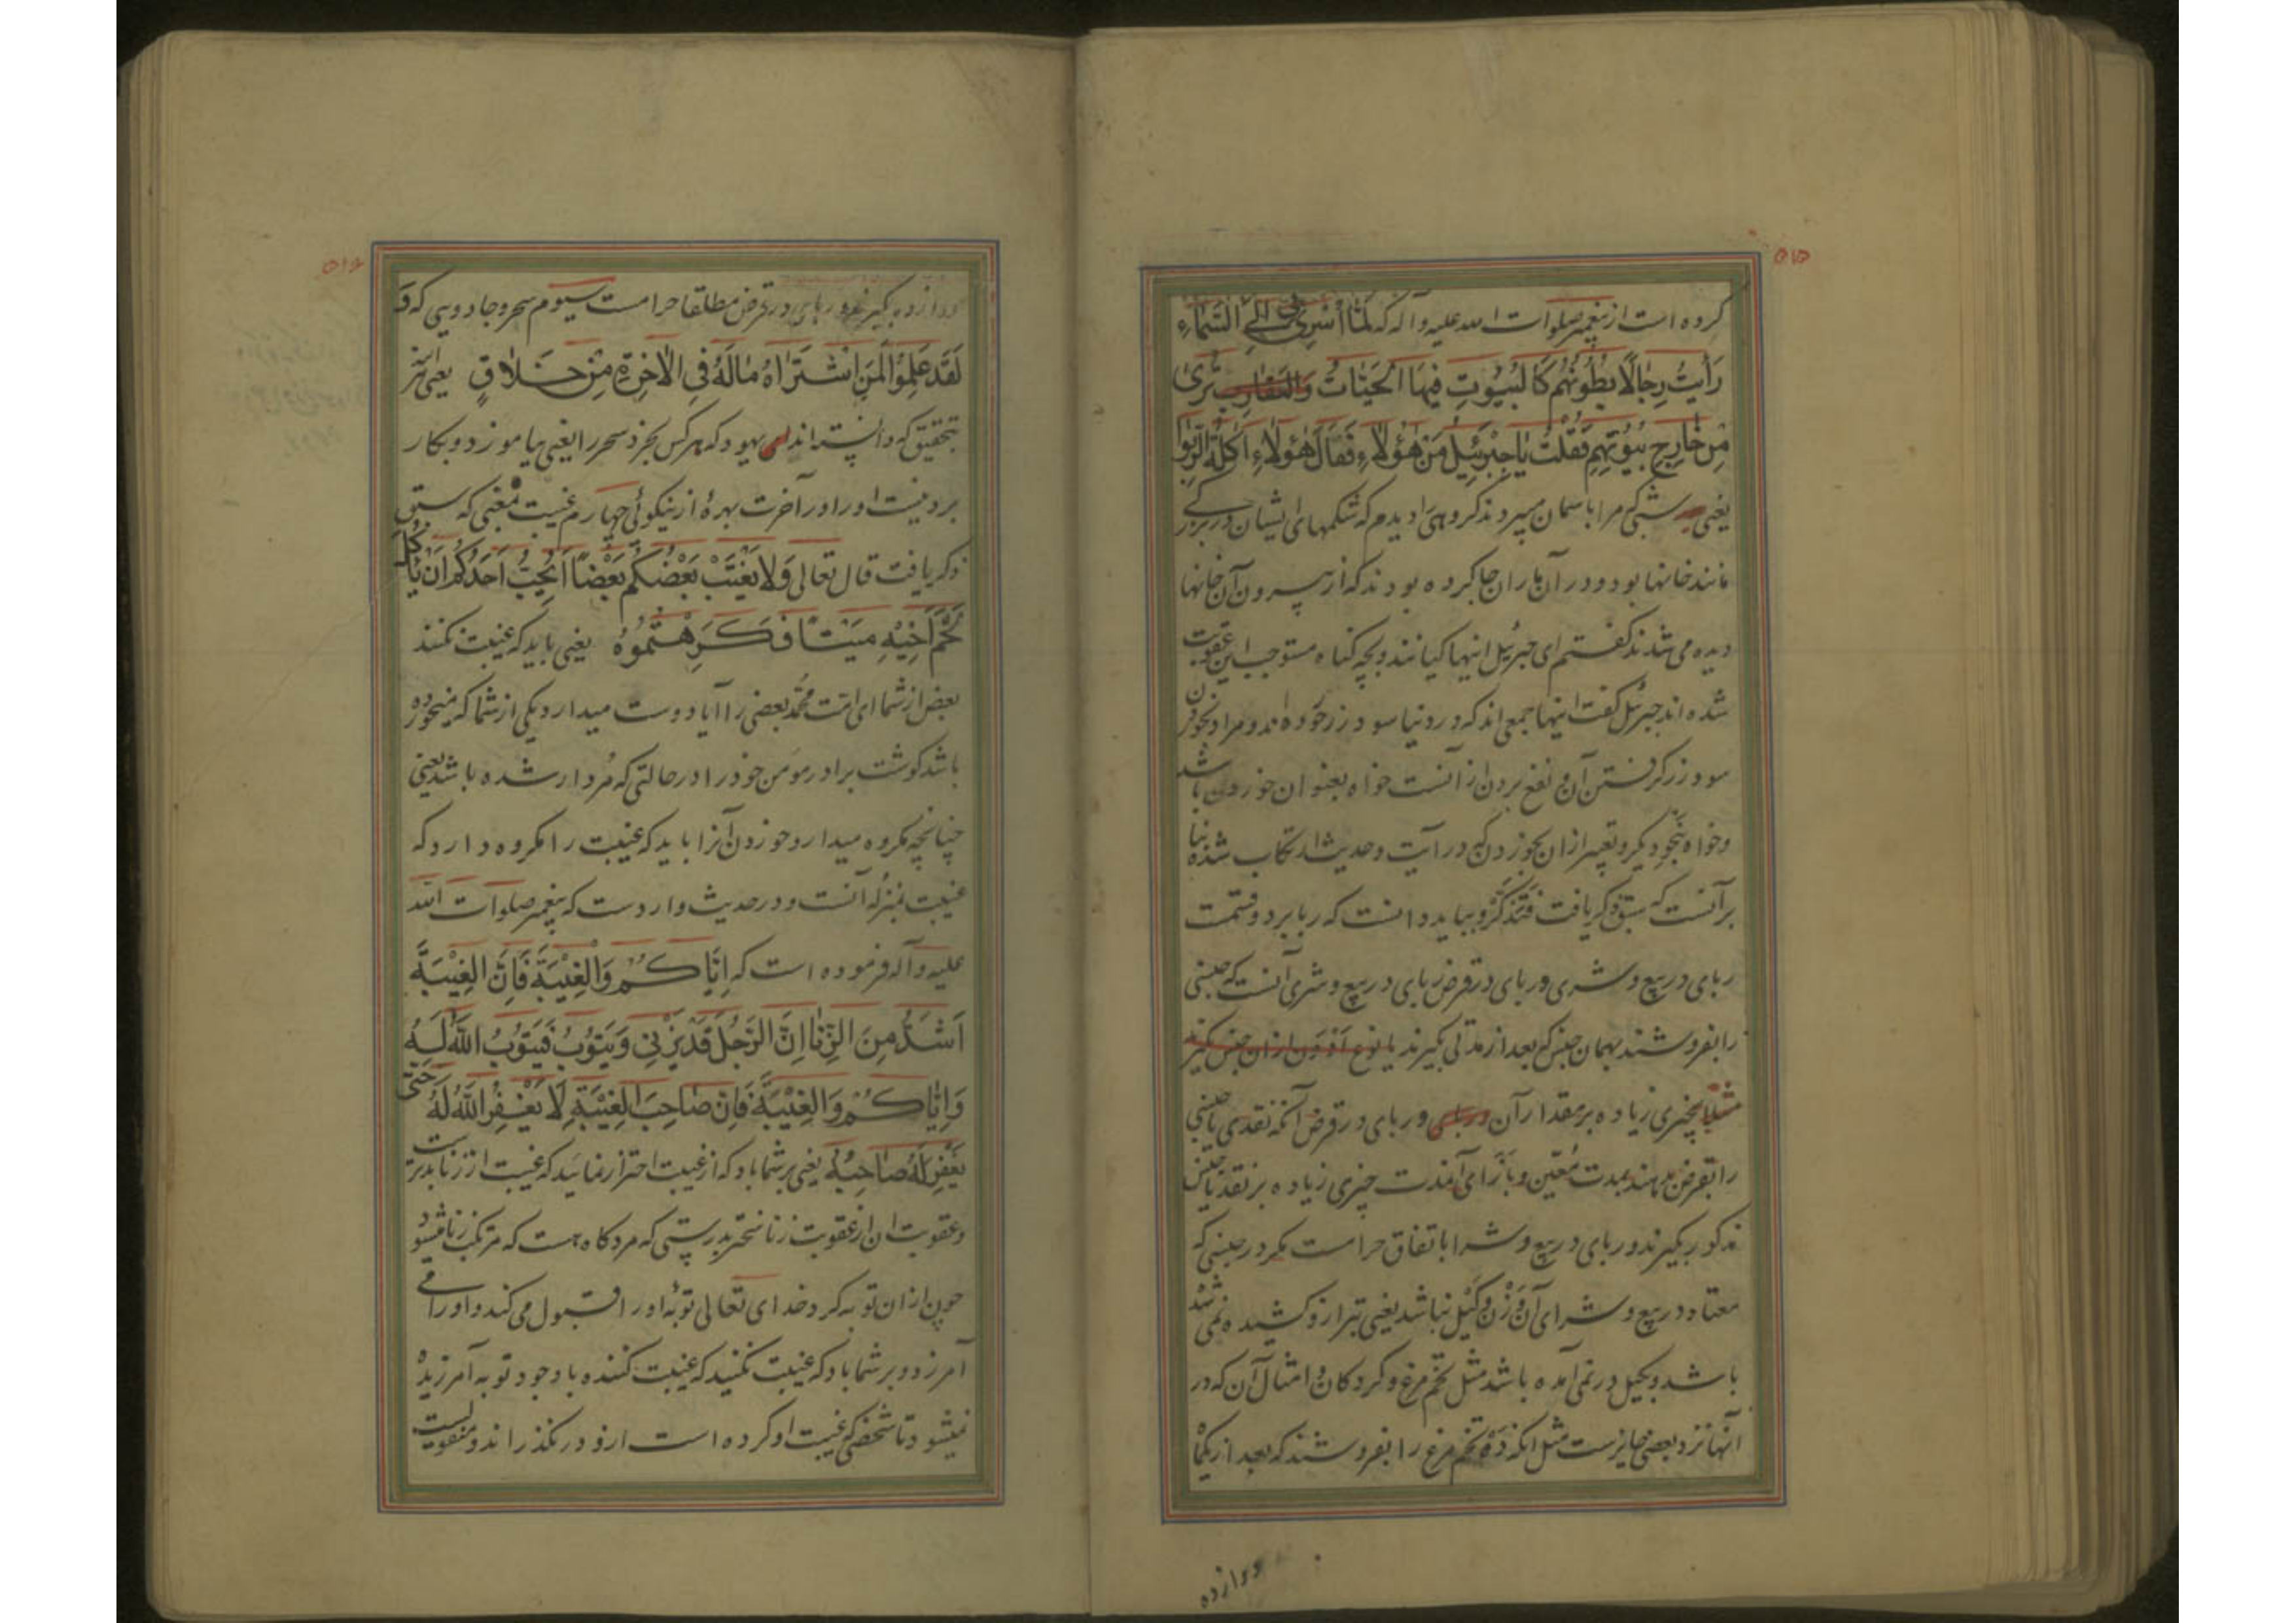 ۵۱۵
کرده است از پیغمبر صلوات الله علیه و آله که لَمّا أُسْرِیَ بی إلَی السَّمَاءِ
رَأیتُ رِجالًا بطُونُهُم کَالبُیُوتِ فیهَا الحَیّاتُ وَالعَقارِب تُریٰ
مِن خارِجِ بُیُوتِهِم فَقُلتُ یا جِبْرَئیلُ مَن هٰؤُلاءِ فَقالَ هٰؤُلاءِ اَکَلَةُ الرِّبٰوا
یعنی شبی که مرا باسمان میبردند کروهی را دیدم که شکمهای ایشان در بزرکی
مانند خانها بود و در آن ماران جا کرده بودند که از بیرون آن خانها
دیده می شدند کفتم ای جبرئیل اینها کیانند و بچه کناه مستوجب این عقوبت
شده اند جبرئیل کفت اینها جمعی اند که در دنیا سود زر خورده اند و مراد بخوردن
سود زر کرفتن آن و نفع بردن از آنست خواه بعنوان خوردن باشد
و خواه بنحو دیکر و تعبیر ازان بخوردن که در آیت و حدیث ارتکاب شده بنا
بر آنست که سبق ذکر یافت فَتَذَکَّرْ و بباید دانست که ربا بر دو قسمت
ربای در بیع و شری و ربای در قرض ربای در بیع و شری آنست که جنسی
را بفروشند بهمان جنس که بعد از مدتی بکیرند یا نوع از ان جنس بکیرند
مثلا بچیزی زیاده بر مقدار آن و ربای در قرض آنکه نقدی یا جنسی
را بقرض بدهند بمدت مُعَیّن و بازای آنمدت چیزی زیاده بر نقد یا جنس
مذکور بکیرند و ربای در بیع و شرا باتفاق حرامست مکر در جنسی که
معتاد در بیع و شرای آن وَزْن و کَیْل نباشد یعنی بترازو کشیده نمی شده
باشد و بکیل در نمی آمده باشد مثل تخم مرغ و کردکان و امثال آن که در
آنها نزد بعضی جایزست مثل آنکه دَه تخم مرغ را بفروشند که بعد از یکماه
دوازده
۵۱۶
دوازده بکیرند و ربای در قرض مطلقا حرامست سیوم سحر و جادویی که وَ
لَقَد عَلِمُوا لَمَنِ اشْتَرَاهُ مٰالَهُ فِی الاٰخِرَةِ مِن خَلاٰقٍ یعنی
بتحقیق که دانسته اند یهود که هرکس بخرد سحر را یعنی بیاموزد و بکار
برد نیست او را در آخرت بهرۀ از نیکوئی چهارم غیبت بمعنی که سبق
ذکر یافت قال تعالی وَلا یَغْتَبْ بَعْضُکُم بَعْضًا اَیُحِبُّ اَحَدُکُم اَن یَأکُلَ
لَحْمَ اَخِیْهِ مَیْتًا فَکَرِهْتُمُوهُ یعنی باید که غیبت نکنند
بعض از شما ای امّت مُحَمّد بعضی را آیا دوست میدارد یکی از شما که میخورده
باشد کوشت برادر مومن خود را در حالتی که مُردار شده باشد یعنی
چنانچه مکروه میدارد خوردن آنرا باید که غیبت را مکروه دارد که
غیبت بمنزلۀ آنست و در حدیث واردست که پیغمبر صلوات الله
علیه و آله فرموده است که اِیّاکُمْ وَالغِیْبَةَ فَاِنَّ الغِیْبَةَ
اَشَدُّ مِنَ الزِّنا اِنَّ الرَّجُلَ قَدْ یَزْنِی وَیَتُوبُ فَیَتُوبُ اللّهُ لَهُ
وَاِیّاکُمْ وَالغِیْبَةَ فَاِنّ صاحِبَ الغِیْبَةِ لا یَغْفِرُ اللّهُ لَهُ حَتّی
یَغْفِرَ لَهُ صاحِبُهُ یعنی بر شما باد که از غیبت احتراز نمائید که غیبت از زنا بدترست
و عقوبت ان از عقوبت زنا سختر بدرستی که مرد کاه هست که مرتکب زنا میشود
چون ازان توبه کرد خدای تعالی توبۀ او را قبول می کند و او را می
آمرزد و بر شما باد که غیبت نکنید که غیبت کننده با وجود توبه آمرزیده
نمیشود تا شخصی که غیبت او کرده است ازو در نکذراند و منقولست